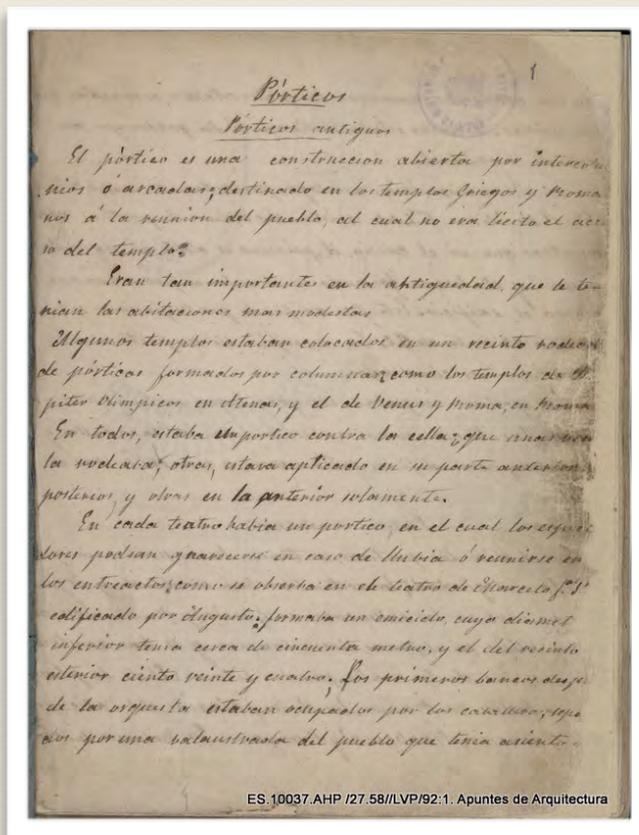 1
Pórticos
Pórticos antiguos
El pórtico es una construccion abierta por intercolu
nios ó arcadas, destinado en los templos Griegos y Roma
nos á la reunion del pueblo, al cual no era lícito el acce
so del templo.
Eran tan importantes en la antiguedad, que le te
nian las abitaciones mas modestas
Algunos templos estaban colocados en un recinto rodeado
de pórticos formados por columnas; como los templos de
piter Olimpicos en Atenas, y el de Venus y Roma, en Roma
En todos, estaba el portico contra la cella; que unas
la rodeaba; otras, estava aplicado en su parte anterior
posterior, y otras en la anterior solamente.
En cada teatro habia un portico, en el cual los espec
dores podian guarecerse en caso de lluvia ó reunirse en
los entreactos; como se observa en el teatro de Marcelo
edificado por Augusto. formaba un emiciclo, cuyo diamet
inferior tenia cerca de cincuenta metros, y el del recinto
esterior ciento veinte y cuatro. Los primeros bancos
de la orquesta estaban ocupados por los caballeros, sepa
dos por una valaustrada del pueblo que tenia asiento
ES.10037.AHP /27.58//LVP/92:1. Apuntes de Arquitectura